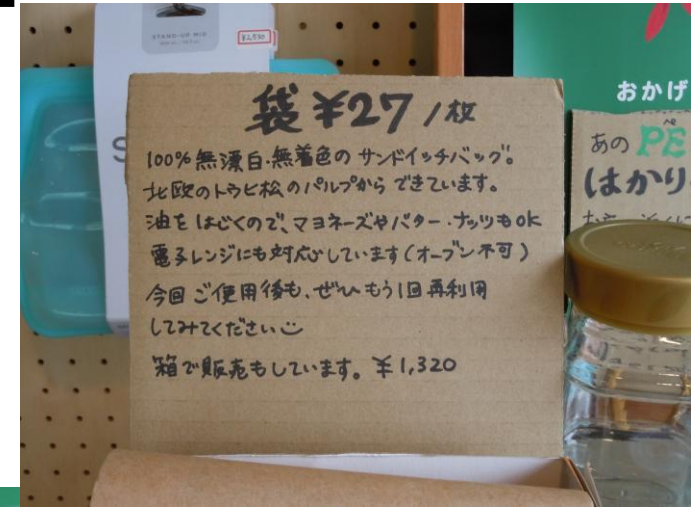 STAND-UP MID
¥2,530
袋 ¥27/枚
100%無漂白・無着色の サンドイッチバッグ。
北欧のトウヒ松のパルプから できています。
油を はじくので、マヨネーズやバター・ナッツもok
電子レンジにも対応しています(オーブン不可)
今回 ご使用後も、ぜひ もう1回 再利用
してみてください
箱で販売もしています。 ¥1,320
おかげ
あの PE
はかり